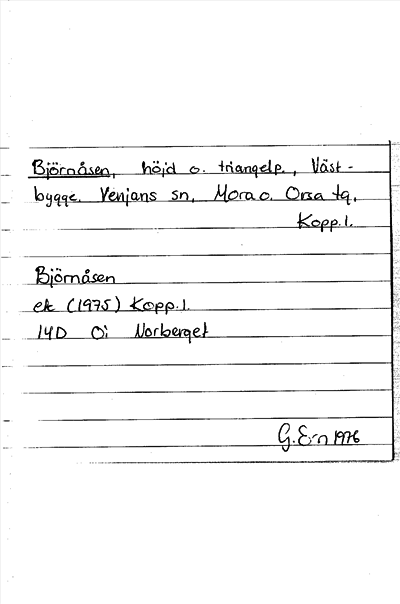 Björnåsen, höjd o. triangelp., Väst-
bygge. Venjans sn, Mora o. Orsa tg,
Kopp. l.
Björnåsen
ek (1975) Kopp. l.
14D 0i Norberget
G. E-n 1976